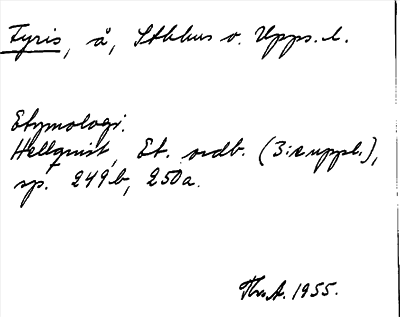 Fyris, å, Sthlms o. Upps. l.
Etymologi.
Hellquist, Et. ordb. (3:e uppl.),
sp. 249b, 250a.
Thn. A. 1955.